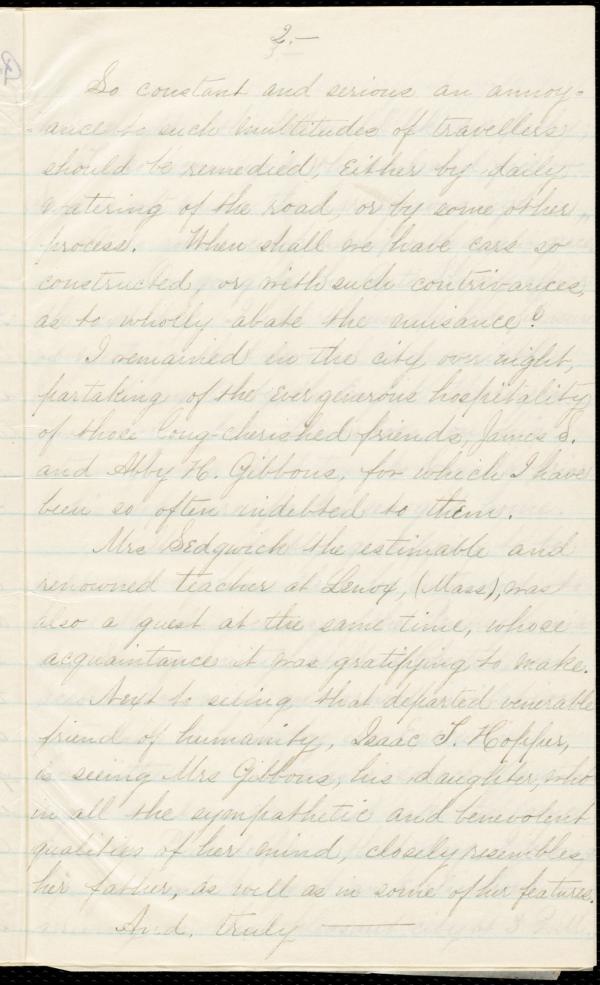 2.—
So constant and serious an annoy=
=ance to such multitudes of travellers
should be remedied, Either by daily
watering of the road, or by some other
process. When shall we have cars so
constructed, or with such contrivances,
as to wholly abate the nuisance?
I remained in the city over night,
partaking of the Ever generous hospitality
of those long-cherished friends, James S.
and Abby H. Gibbons, for which I have
been so often indebted to them.
Mrs Sedgwick the estimable and
renowned teacher at Lenox, (Mass), was
also a guest at the same time, whose
acquaintance it was gratifying to make.
Next to seeing that departed venerable
friend of humanity, Isaac T. Hopper,
is seeing Mrs Gibbons, his daughter, who
in all the sympathetic and benevolent
qualities of her mind, closely resembles
her father, as well as in some of her features.
And. truly ———